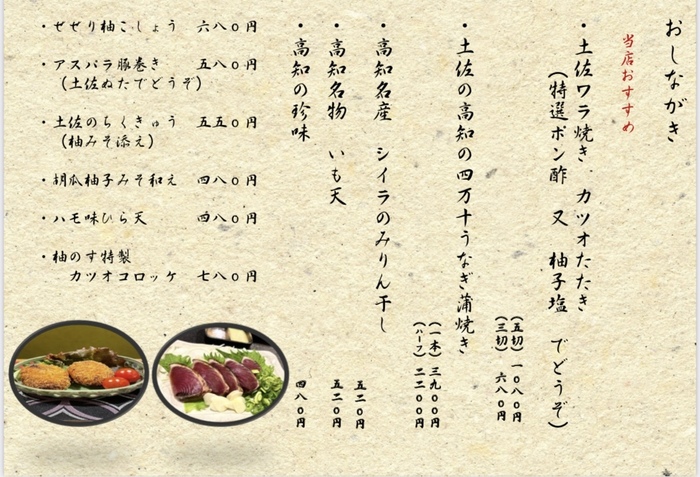 おしながき
当店おすすめ
・土佐ワラ焼き カツオたたき
(特選ポン酢 又 柚子塩 でどうぞ)
(五切) 一〇八〇円
(三切) 六八〇円
・土佐の高知の四万十うなぎ蒲焼き
(一本) 三九〇〇円
(ハーフ) 二二〇〇円
・高知名産 シイラのみりん干し
五二〇円
・高知名物 いも天
五二〇円
・高知の珍味
四八〇円
・ぜぜり柚こしょう 六八〇円
・アスパラ豚巻き 五八〇円
(土佐ぬたでどうぞ)
・土佐のちくきゅう 五五〇円
(柚みそ添え)
・胡瓜柚子みそ和え 四八〇円
・ハモ味ひら天 四八〇円
・柚のす特製
カツオコロッケ 七八〇円